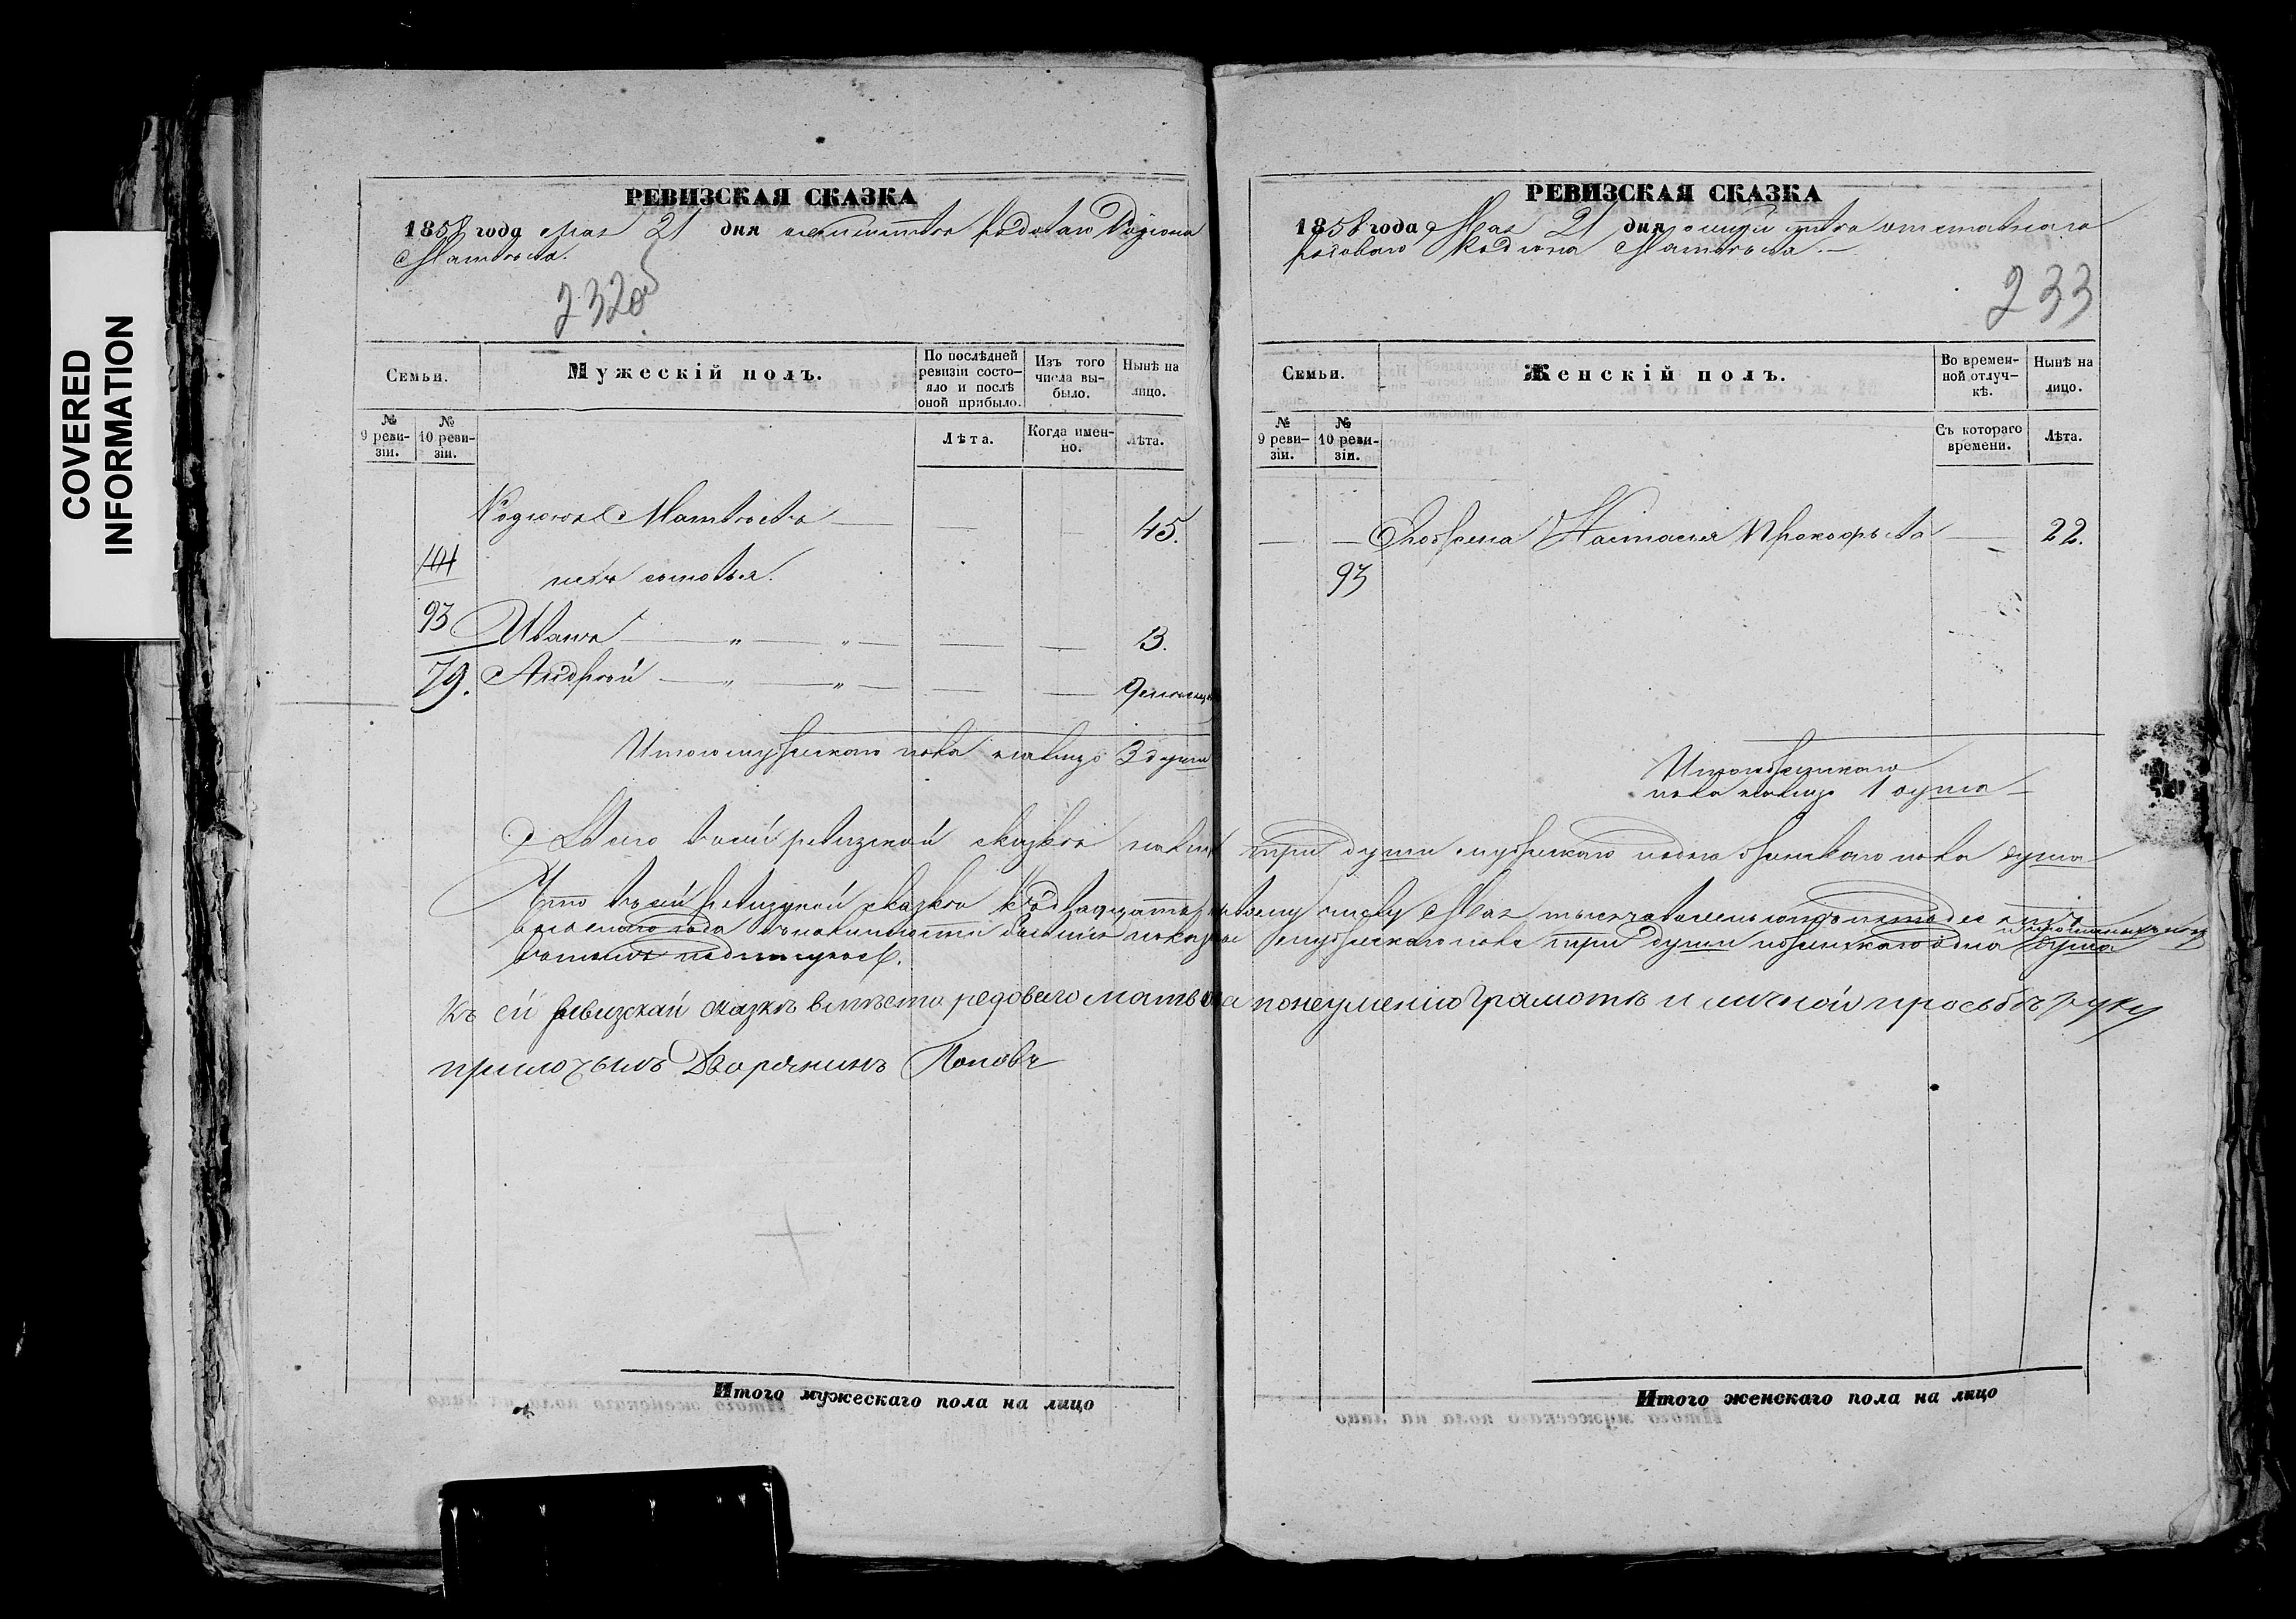 COVERED
INFORMATION
РЕВИЗСКАЯ СКАЗКА
1858 года Мая 21 дня рядоваго Родіона
Матвѣева.
232об
Семьи.
Мужескій полъ.
По послѣдней ревизіи состояло и послѣ оной прибыло.
Изъ того числа выбыло.
Нынѣ на лицо.
№ 9 ревизіи.
№ 10 ревизіи.
Лѣта.
Когда именно.
Лѣта.
Родіонъ Матвѣевъ — — — 45.
него сыновья.
93
Иванъ — „ — „ — — — 3.
79. Андрей — „ — „ — — — 9 месяцъ
Итого мужескаго пола налицо 3 души
РЕВИЗСКАЯ СКАЗКА
1858 года Мая 21 дня отставнаго
рядоваго Родіона Матвѣева —
233
Семьи.
Женскій полъ.
Во временной отлучкѣ.
Нынѣ на лицо.
№ 9 ревизіи.
№ 10 ревизіи.
Съ котораго времени.
Лѣта.
— — Настасья Прокофьева — — 22.
93
Итого женскаго
пола налицо 1 душа —
Всего въ сей ревизской сказкѣ налицо три души мужескаго пола женскаго пола душа
Что въ сей ревизской сказкѣ къ двадцать первому числу Мая тысяча восемьсотъ пятьдесятъ
осьмаго года въ наличности мужескаго пола три души женскаго одна душа
въ томъ подписуюсь.
Къ сей ревизской сказкѣ вмѣсто редоваго Матвѣева понеумению грамотѣ и личной просьбѣ руку
приложилъ Дворянинъ Поповъ
Итого мужескаго пола на лицо
Итого женскаго пола на лицо